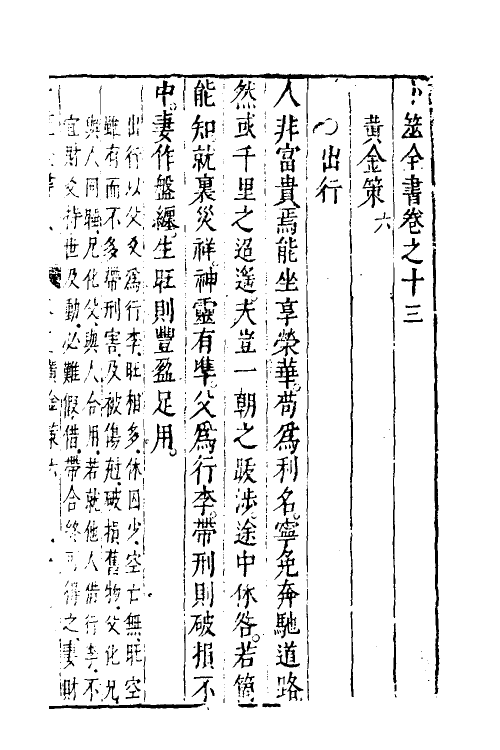 卜筮全書卷之十三
黃金策六
○出行
人非富貴焉能坐享榮華。苟爲利名。寧免奔馳道路
然或千里之迢遥。夫豈一朝之跋涉。途中休咎。若箇
能知。就裏災祥。神靈有準。父爲行李。帶刑則破損不
中。妻作盤纏。生旺則豐盈足用。
出行以父爻爲行李。旺相多。休囚少。空亡無。旺空
雖有而不多。帶刑害及被傷尅。破損舊物。父化兄
與人同騎。兄化父與人合用。若就他人借行李。不
宜財爻持世及動。必難假借。帶合終可得之。妻財
黃金策六